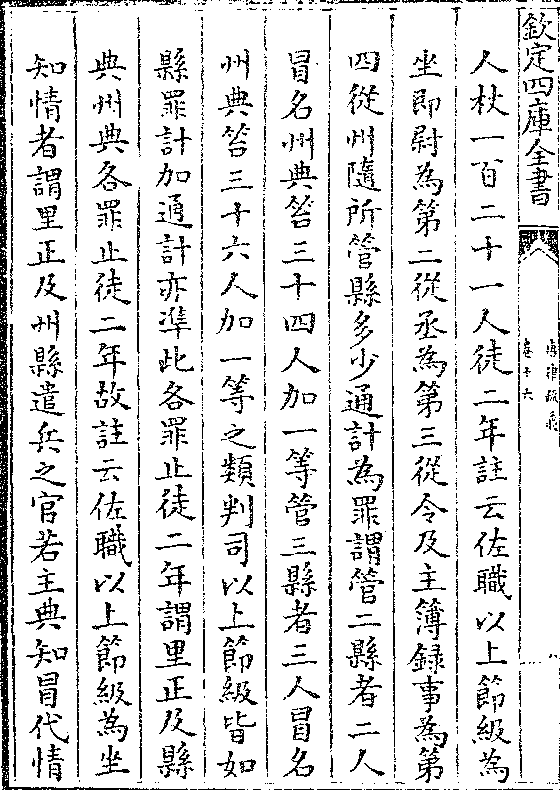 欽定四庫全書
卷十六
人杖一百二十一人徒二年註云佐職以上節級為
坐即尉為第二從丞為第三從令及主簿録事為第
四從州隨所管縣多少通計為罪謂管二縣者二人
冒名州典笞三十四人加一等管三縣者三人冒名
州典笞三十六人加一等之類判司以上節級皆如
縣罪計加通計亦準此各罪止徒二年謂里正及縣
典州典各罪止徒二年故註云佐職以上節級為坐
知情者謂里正及州縣遣兵之官若主典知冒代情